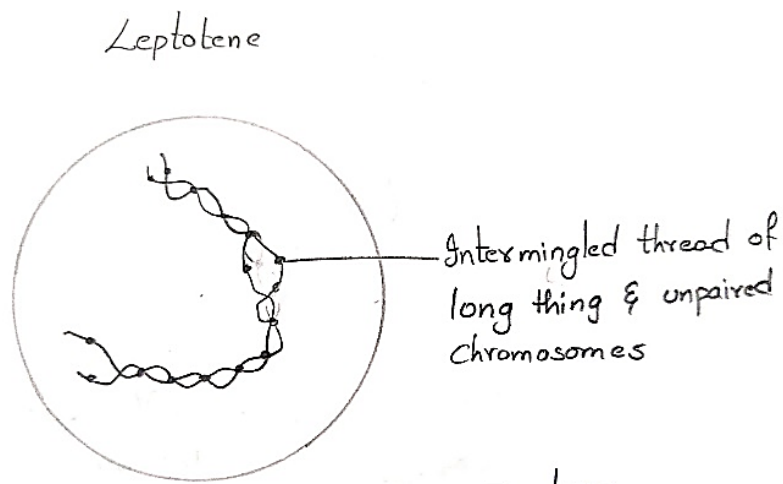 Leptotene
Intermingled thread of
long thing & unpaired
chromosomes